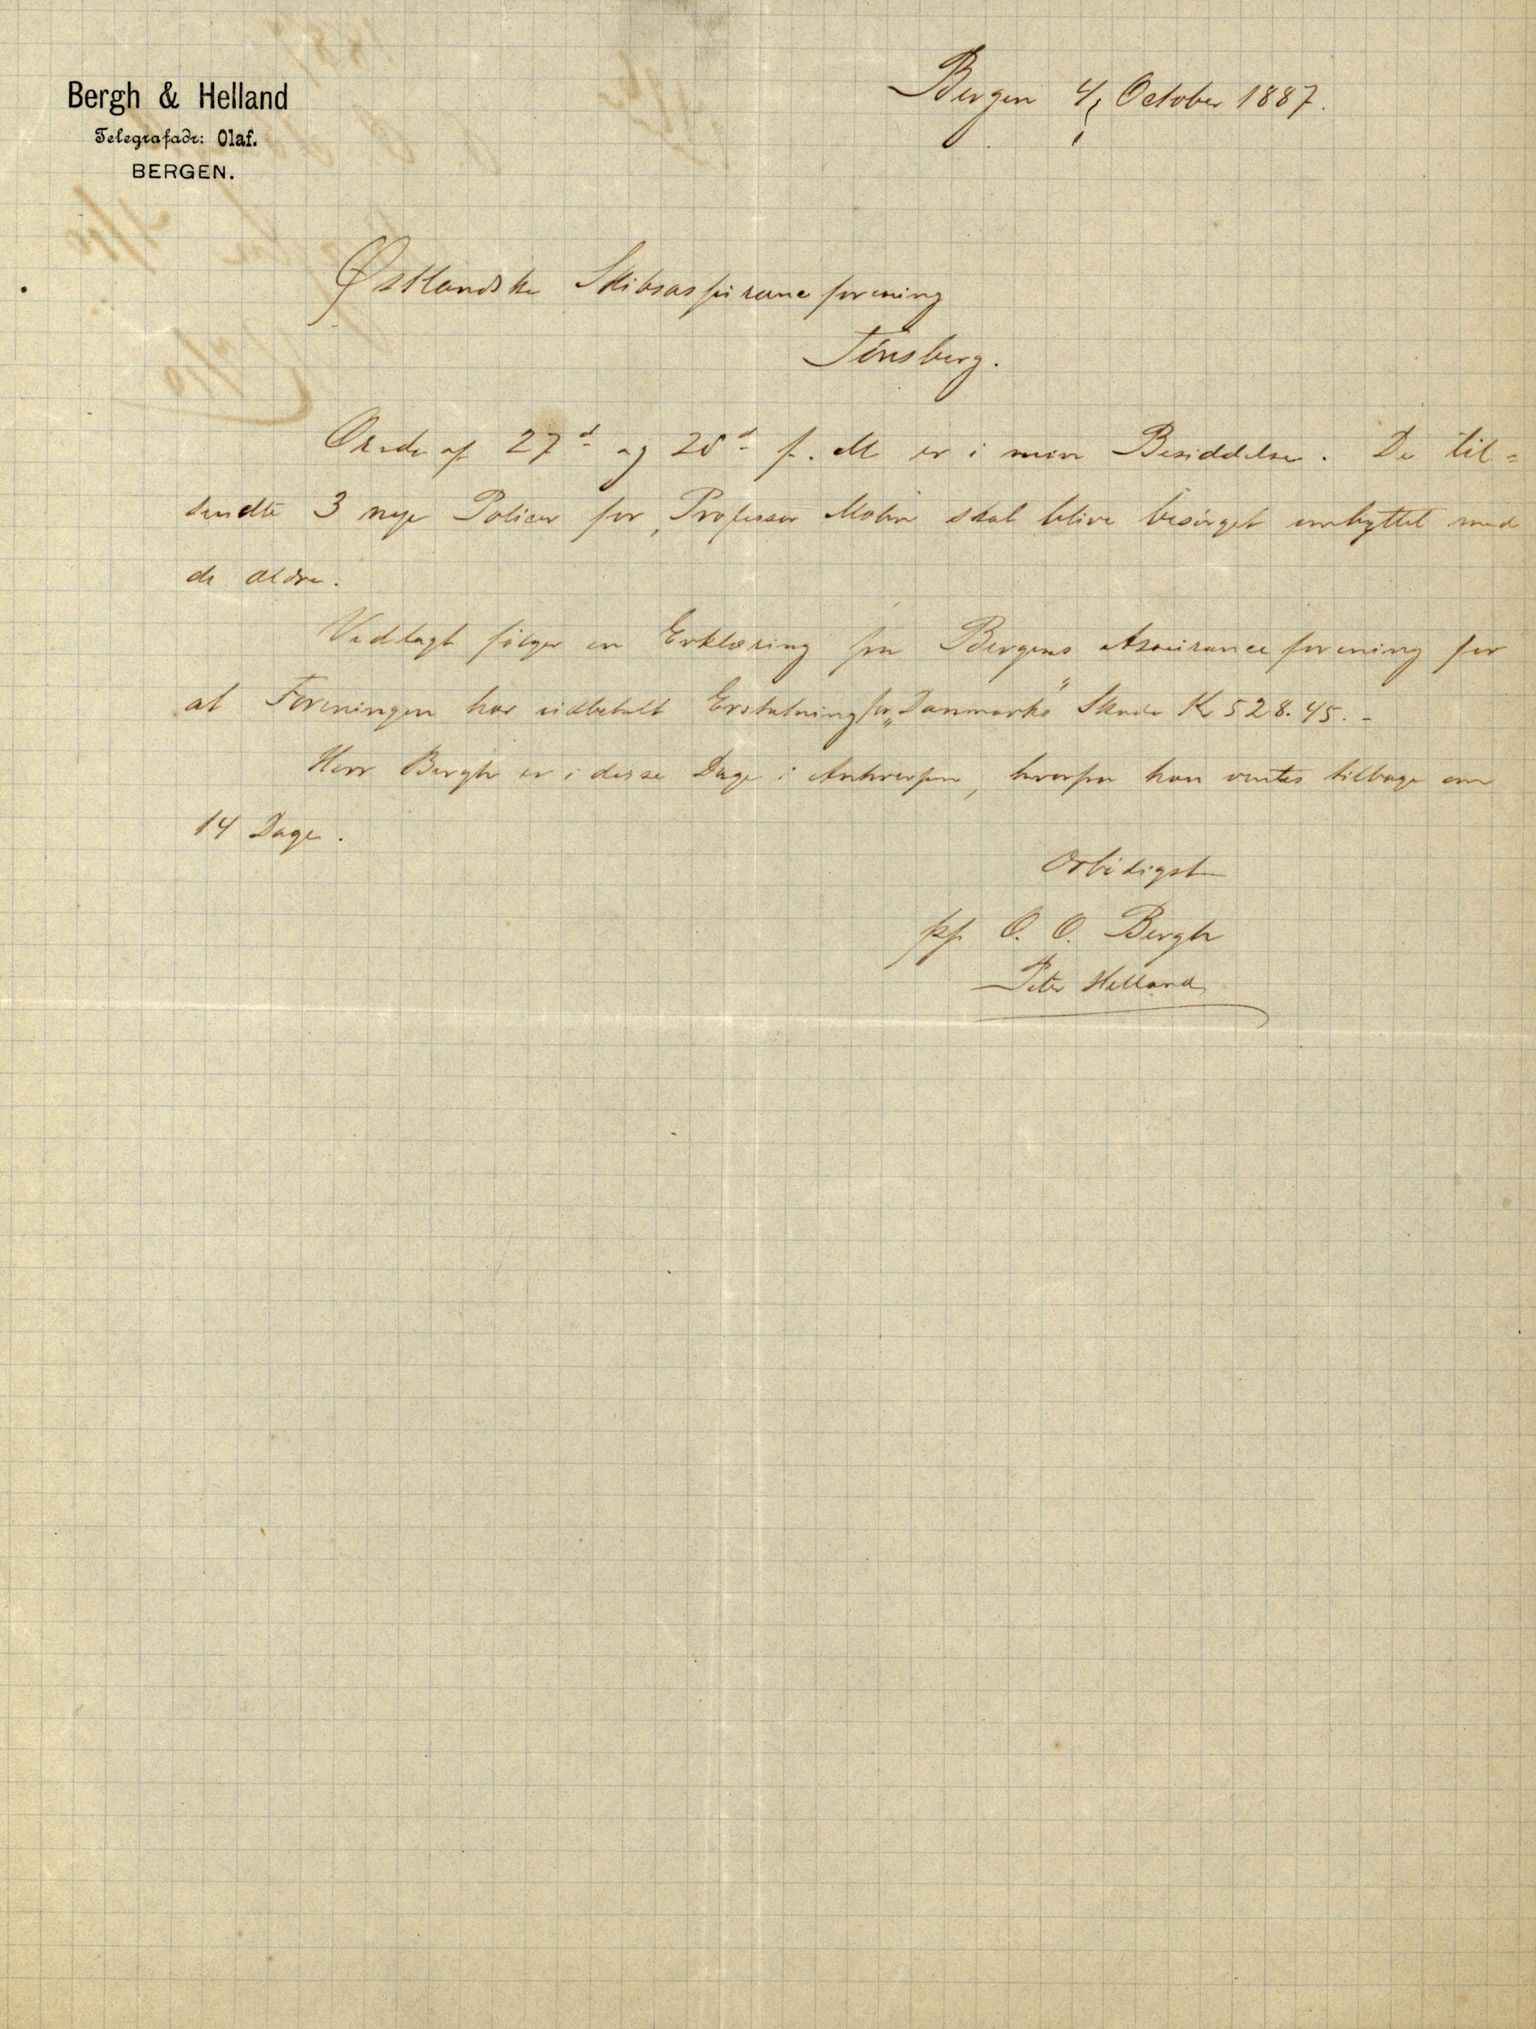 Bergh & Helland
Telegrafadr: Olaf.
BERGEN.
Bergen 4 October 1887.
Østlandske Skibsassuranceforening
Tønsberg.
Ærede af 27d og 28d f. M er i min Besiddelse. De til=
sendte 3 nye Policer for Professor Mohn skal blive besørget ombyttet med
de ældre.
Vedlagt følger en Erklæring fra Bergens Assuranceforening for
at Foreningen har udbetalt Erstatning for „Danmarks" Skade Kr 528.45.-
Herr Bergh er i disse Dage i Antwerpen, hvorfra han ventes tilbage om
14 Dage.
Ærbødigst
pp O. O. Bergh
Peter Helland